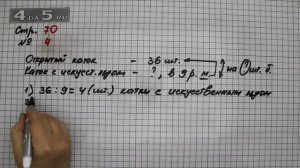 4DS.RU
Стр. 70
№ 4
Открытый каток - 36 шт.
Каток с искусст. льдом - ?, в 9 р. м.
на ? шт. б.
1) 36 : 9 = 4 (шт.) катки с искусственным льдом